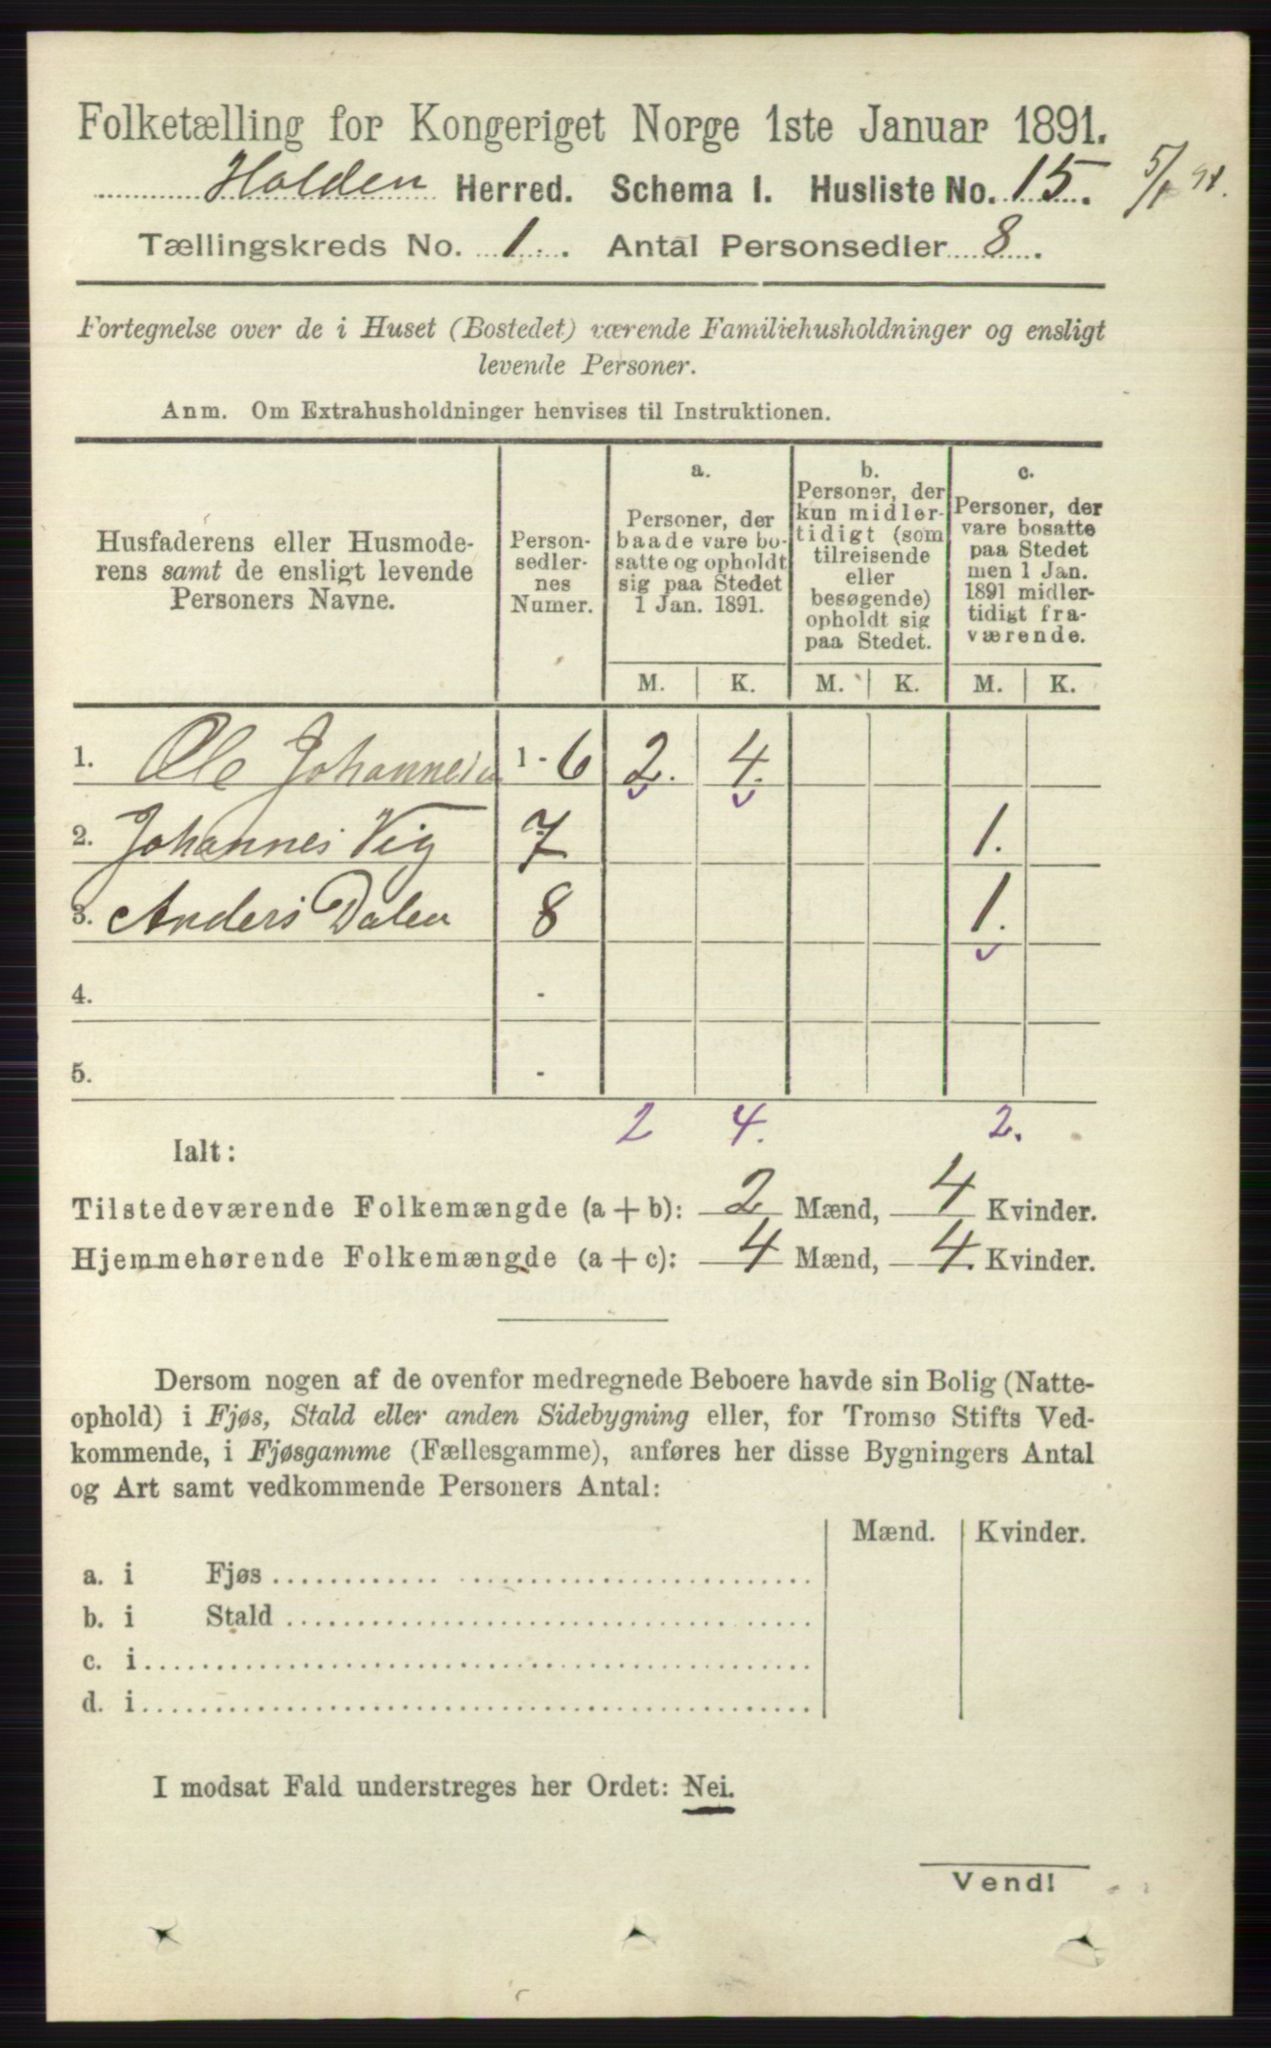 Folketælling for Kongeriget Norge 1ste Januar 1891.
Holden Herred. Schema I. Husliste No. 15. 5/1 91.
Tællingskreds No. 1. Antal Personsedler 8.
Fortegnelse over de i Huset (Bostedet) værende Familiehusholdninger og ensligt
levende Personer.
Anm. Om Extrahusholdninger henvises til Instruktionen.
Husfaderens eller Husmode-
rens samt de ensligt levende
Personers Navne.
Person-
sedler-
nes
Numer.
a.
Personer, der
baade vare bo-
satte og opholdt
sig paa Stedet
1 Jan. 1891.
b.
Personer, der
kun midler-
tidigt (som
tilreisende
eller
besøgende)
opholdt sig
paa Stedet.
c.
Personer, der
vare bosatte
paa Stedet
men 1 Jan.
1891 midler-
tidigt fra-
værende.
M. K. M. K. M. K.
1. Ole Johannesen 1 - 6 2. 4.
2. Johannes Vig 7 1.
3. Anders Dalen 8 1.
4. -
5. -
2 4. 2.
Ialt:
Tilstedeværende Folkemængde (a + b): 2 Mænd, 4 Kvinder.
Hjemmehørende Folkemængde (a + c): 4 Mænd, 4. Kvinder.
Dersom nogen af de ovenfor medregnede Beboere havde sin Bolig (Natte-
ophold) i Fjøs, Stald eller anden Sidebygning eller, for Tromsø Stifts Ved-
kommende, i Fjøsgamme (Fællesgamme), anføres her disse Bygningers Antal
og Art samt vedkommende Personers Antal:
Mænd. Kvinder.
a. i Fjøs
b. i Stald
c. i
d. i
I modsat Fald understreges her Ordet: Nei.
Vend!